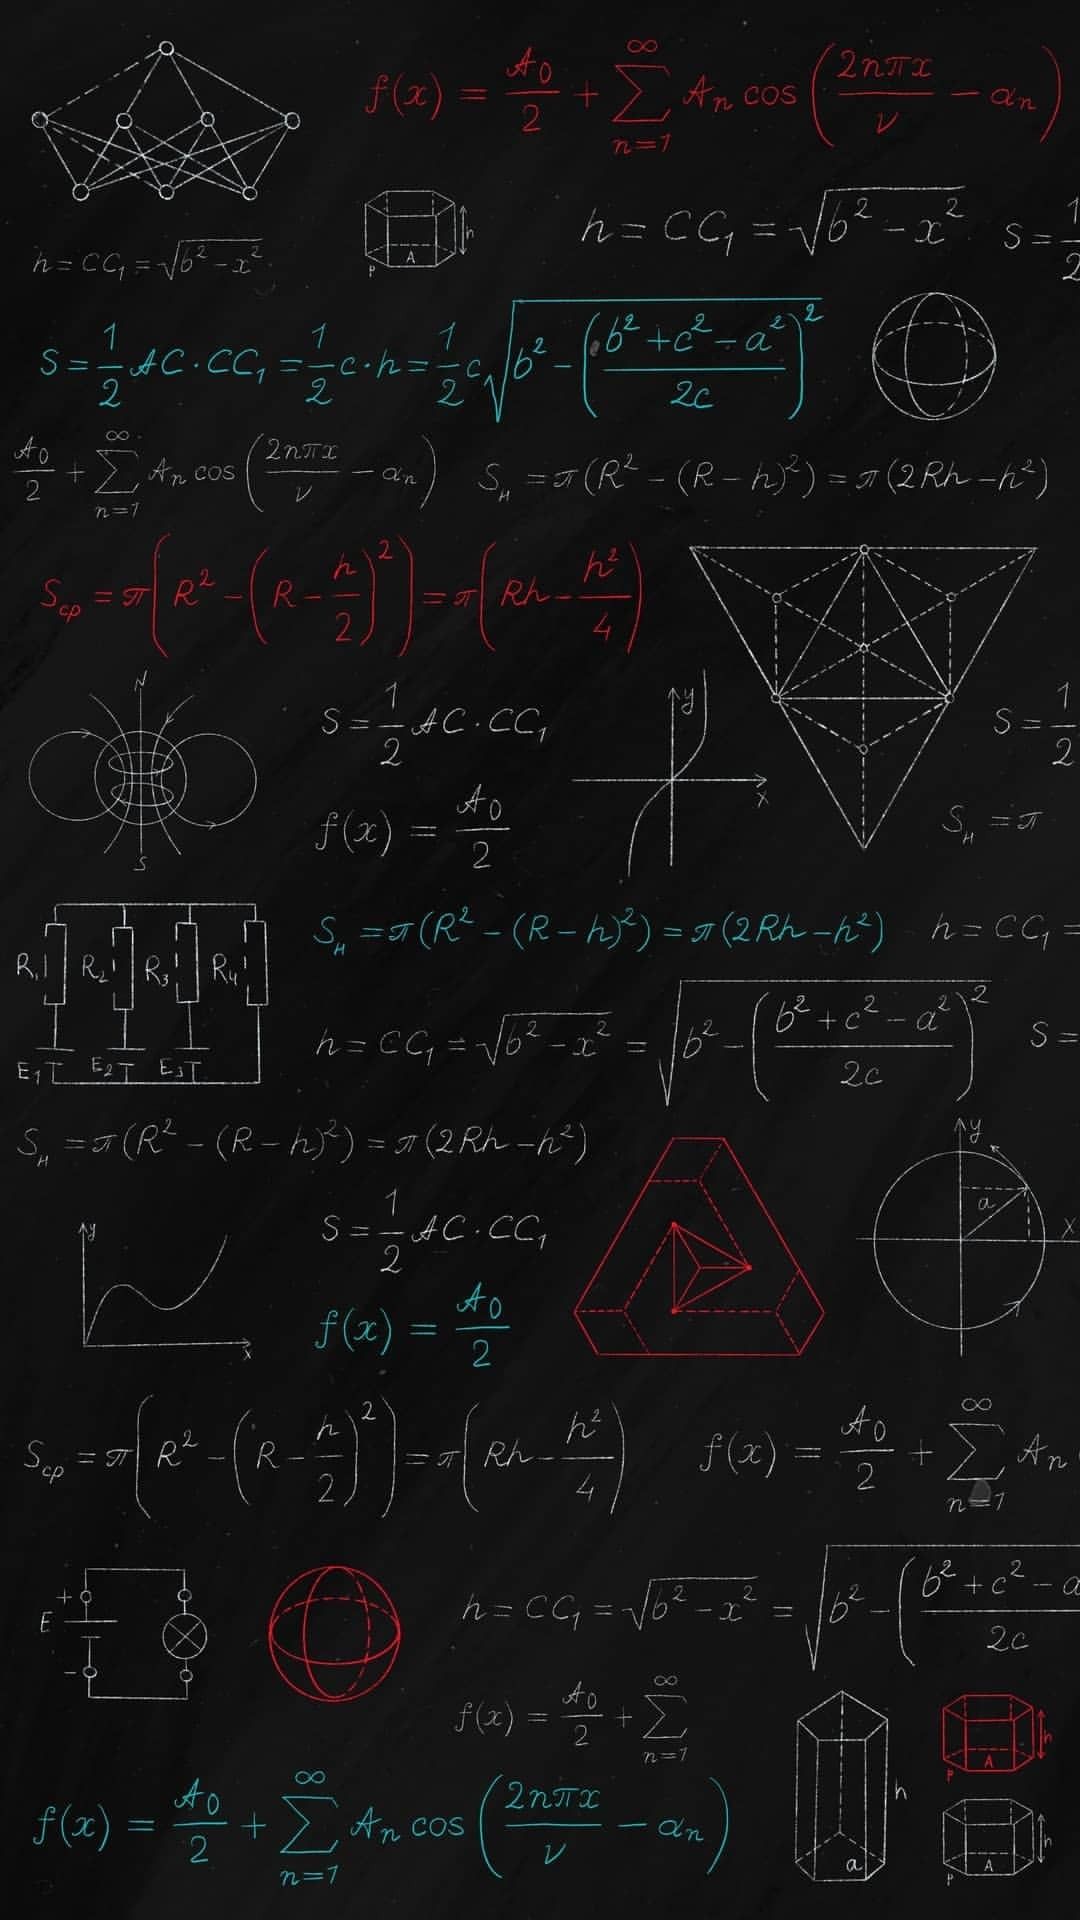 f(x) = A₀/2 + ∑_{n=1}^{∞} Aₙ cos (2nπx/ν − αₙ)
h = CC₁ = √(b² − x²)
S = 1/2
h = CC₁ = √(b² − x²)
P A h
S = 1/2 AC · CC₁ = 1/2 c · h = 1/2 c √(b² − ((b² + c² − a²)/2c)²)
A₀/2 + ∑_{n=1}^{∞} Aₙ cos (2nπx/ν − αₙ)
Sₙ = π(R² − (R − h)²) = π(2Rh − h²)
Scp = π(R² − (R − h/2)²) = π(Rh − h²/4)
N
S
S = 1/2 AC · CC₁
y
x
S = 1/2
f(x) = A₀/2
Sₙ = π
R₁ R₂ R₃ R₄
E₁ E₂ E₃
Sₙ = π(R² − (R − h)²) = π(2Rh − h²)
h = CC₁ =
h = CC₁ = √(b² − x²) = √(b² − ((b² + c² − a²)/2c)²)
S =
Sₙ = π(R² − (R − h)²) = π(2Rh − h²)
y
a
x
y
x
S = 1/2 AC · CC₁
f(x) = A₀/2
Scp = π(R² − (R − h/2)²) = π(Rh − h²/4)
f(x) = A₀/2 + ∑_{n=1}^{∞} Aₙ
+
E
−
h = CC₁ = √(b² − x²) = √(b² − (b² + c² − a/2c
f(x) = A₀/2 + ∑_{n=1}^{∞}
h
a
P A h
P A h
f(x) = A₀/2 + ∑_{n=1}^{∞} Aₙ cos (2nπx/ν − αₙ)